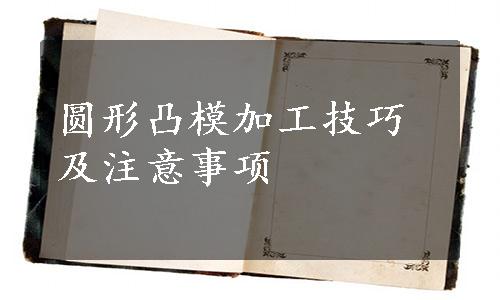 圆形凸模加工技巧
及注意事项